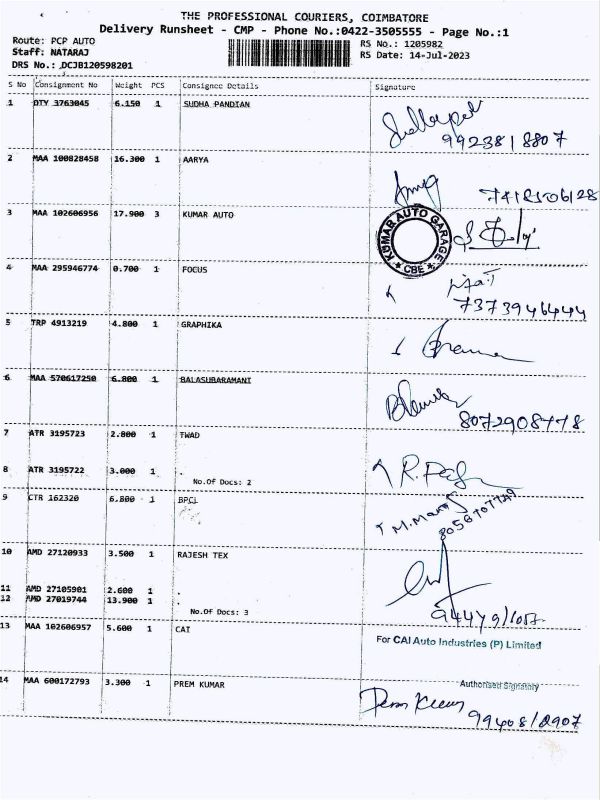 THE PROFESSIONAL COURIERS, COIMBATORE
Delivery Runsheet - CMP - Phone No.:0422-3505555 - Page No.:1
Route: PCP AUTO
Staff: NATARAJ
DRS No.: DCJB120598201
RS No.: 1205982
RS Date: 14-Jul-2023
S No Consignment No Weight PCS Consignee Details Signature
1 DTY 3763045 6.150 1 SUDHA PANDIAN
9923818807
2 MAA 100828458 16.300 1 AARYA
3 MAA 102606956 17.900 3 KUMAR AUTO
KUMAR AUTO GARAGE
* CBE *
4 MAA 295946774 0.700 1 FOCUS
7373946444
5 TRP 4913219 4.800 1 GRAPHIKA
6 MAA 570617250 6.800 1 BALASUBARAMANI
8072908778
7 ATR 3195723 2.800 1 TWAD
8 ATR 3195722 3.000 1 .
No.Of Docs: 2
9 CTR 162320 6.800 1 BPCL
10 AMD 27120933 3.500 1 RAJESH TEX
11 AMD 27105901 2.600 1 .
12 AMD 27019744 13.900 1 .
No.Of Docs: 3
13 MAA 102606957 5.600 1 CAI
For CAI Auto Industries (P) Limited
Authorised Signatory
14 MAA 600172793 3.300 1 PREM KUMAR